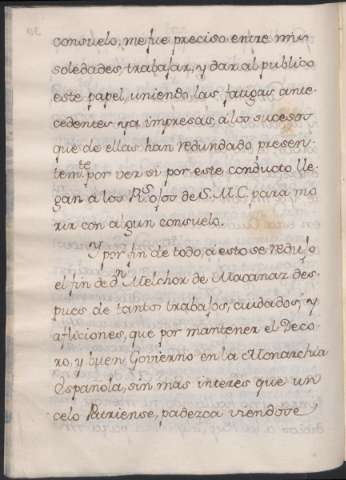 consuelo, me fue preciso entre mis
soledades trabajar, y dar al publico
este papel, uniendo las fatigas ante-
cedentes ya impresas, á los sucesos
que de ellas han redundado presen-
tem.te por ver si por este conducto lle-
gan a los R.s ojos de S.M.C. para mo-
rir con algun consuelo.
Y por fin de todo, á esto se redujo
el fin de d.n Melchor de Macanaz des-
pues de tantos trabajos, cuidados, y
afliciones, que por mantener el Deco-
ro, y buen Govierno en la Monarchia
Española, sin mas interés que un
celo Pariense, padezca viendose